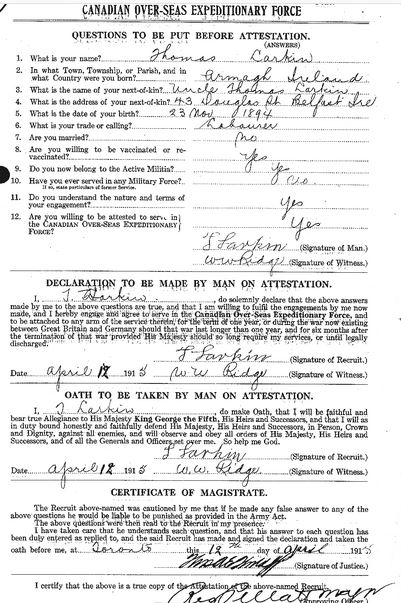 CANADIAN OVER-SEAS EXPEDITIONARY FORCE
QUESTIONS TO BE PUT BEFORE ATTESTATION.
(ANSWERS)
1. What is your name? Thomas Larkin
2. In what Town, Township, or Parish, and in
what Country were you born? Armagh Ireland
3. What is the name of your next-of-kin? Uncle Thomas Larkin
4. What is the address of your next-of-kin? 43 Douglas St Belfast Ire
5. What is the date of your birth? 23 Nov 1894
6. What is your trade or calling? Labourer
7. Are you married? No
8. Are you willing to be vaccinated or re-
vaccinated? Yes
9. Do you now belong to the Active Militia? Yes
10. Have you ever served in any Military Force? No
If so, state particulars of former Service.
11. Do you understand the nature and terms of
your engagement? Yes
12. Are you willing to be attested to serve in
the CANADIAN OVER-SEAS EXPEDITIONARY
FORCE? Yes
T Larkin (Signature of Man.)
W W Ridge (Signature of Witness.)
DECLARATION TO BE MADE BY MAN ON ATTESTATION.
I, T Larkin, do solemnly declare that the above answers
made by me to the above questions are true, and that I am willing to fulfil the engagements by me now
made, and I hereby engage and agree to serve in the Canadian Over-Seas Expeditionary Force, and
to be attached to any arm of the service therein, for the term of one year, or during the war now existing
between Great Britain and Germany should that war last longer than one year, and for six months after
the termination of that war provided His Majesty should so long require my services, or until legally
discharged.
T Larkin (Signature of Recruit.)
Date April 12 1915 W W Ridge (Signature of Witness.)
OATH TO BE TAKEN BY MAN ON ATTESTATION.
I, T Larkin, do make Oath, that I will be faithful and
bear true Allegiance to His Majesty King George the Fifth, His Heirs and Successors, and that I will as
in duty bound honestly and faithfully defend His Majesty, His Heirs and Successors, in Person, Crown
and Dignity, against all enemies, and will observe and obey all orders of His Majesty, His Heirs and
Successors, and of all the Generals and Officers set over me. So help me God.
T Larkin (Signature of Recruit.)
Date April 12 1915 W. W. Ridge (Signature of Witness.)
CERTIFICATE OF MAGISTRATE.
The Recruit above-named was cautioned by me that if he made any false answer to any of the
above questions he would be liable to be punished as provided in the Army Act.
The above questions were then read to the Recruit in my presence.
I have taken care that he understands each question, and that his answer to each question has
been duly entered as replied to, and the said Recruit has made and signed the declaration and taken the
oath before me, at Toronto this 12th day of April 1915
(Signature of Justice.)
I certify that the above is a true copy of the Attestation of the above-named Recruit.
(Approving Officer.)